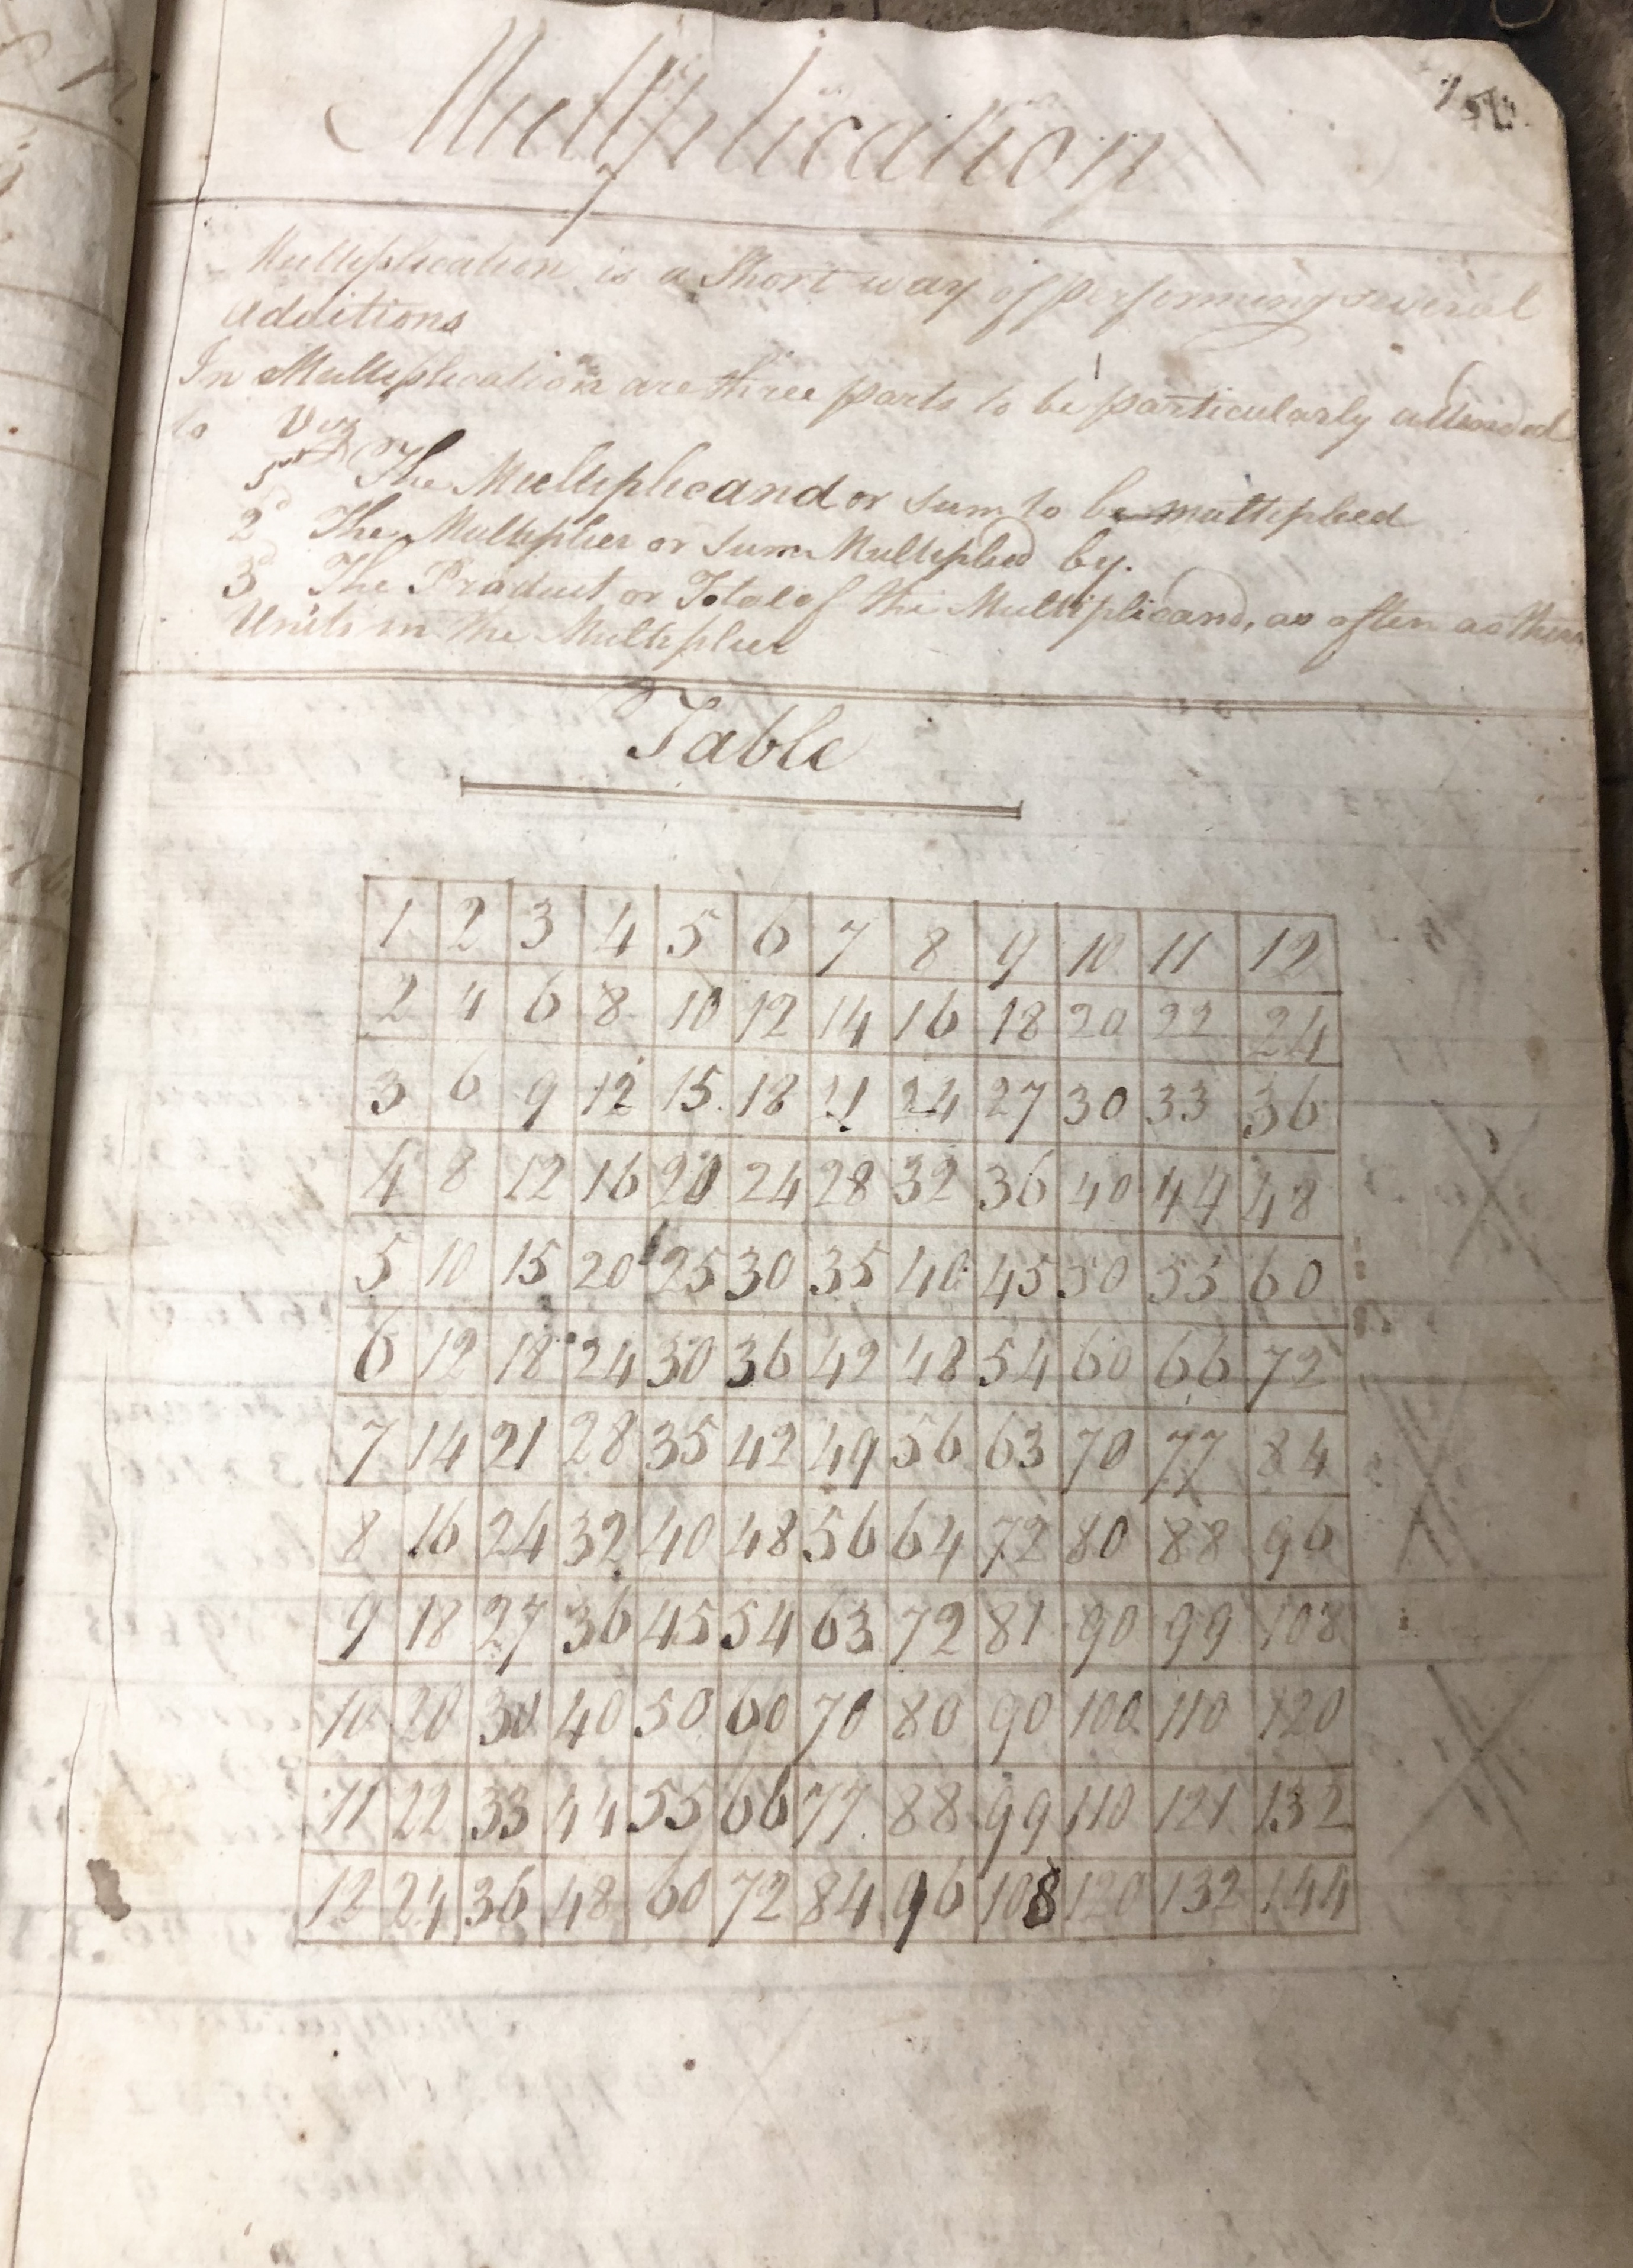 Multiplication
Multiplication is a Short way of performing several
Additions
In Multiplication are three parts to be particularly attended
to Viz
The Multiplicand or Sum to be multiplied
2d The Multiplier or Sum Multiplied by.
3d The Product or Total of the Multiplicand, as often as there
Units in the Multiplier
Table
1 2 3 4 5 6 7 8 9 10 11 12
2 4 6 8 10 12 14 16 18 20 22 24
3 6 9 12 15 18 21 24 27 30 33 36
4 8 12 16 20 24 28 32 36 40 44 48
5 10 15 20 25 30 35 40 45 50 55 60
6 12 18 24 30 36 42 48 54 60 66 72
7 14 21 28 35 42 49 56 63 70 77 84
8 16 24 32 40 48 56 64 72 80 88 96
9 18 27 36 45 54 63 72 81 90 99 108
10 20 30 40 50 60 70 80 90 100 110 120
11 22 33 44 55 66 77 88 99 110 121 132
12 24 36 48 60 72 84 96 108 120 132 144